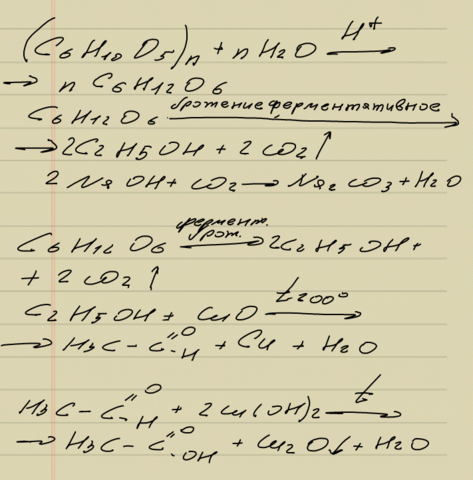 (C6H10O5)n + nH2O —H+→
→ n C6H12O6
C6H12O6 —брожение ферментативное→
→ 2C2H5OH + 2CO2↑
2NaOH + CO2 → Na2CO3 + H2O
C6H12O6 —фермент. брож.→ 2C2H5OH +
+ 2CO2↑
C2H5OH + CuO —t 200°→
→ H3C – C=O –H + Cu + H2O
H3C – C=O –H + 2Cu(OH)2 —t→
→ H3C – C=O –OH + Cu2O↓ + H2O